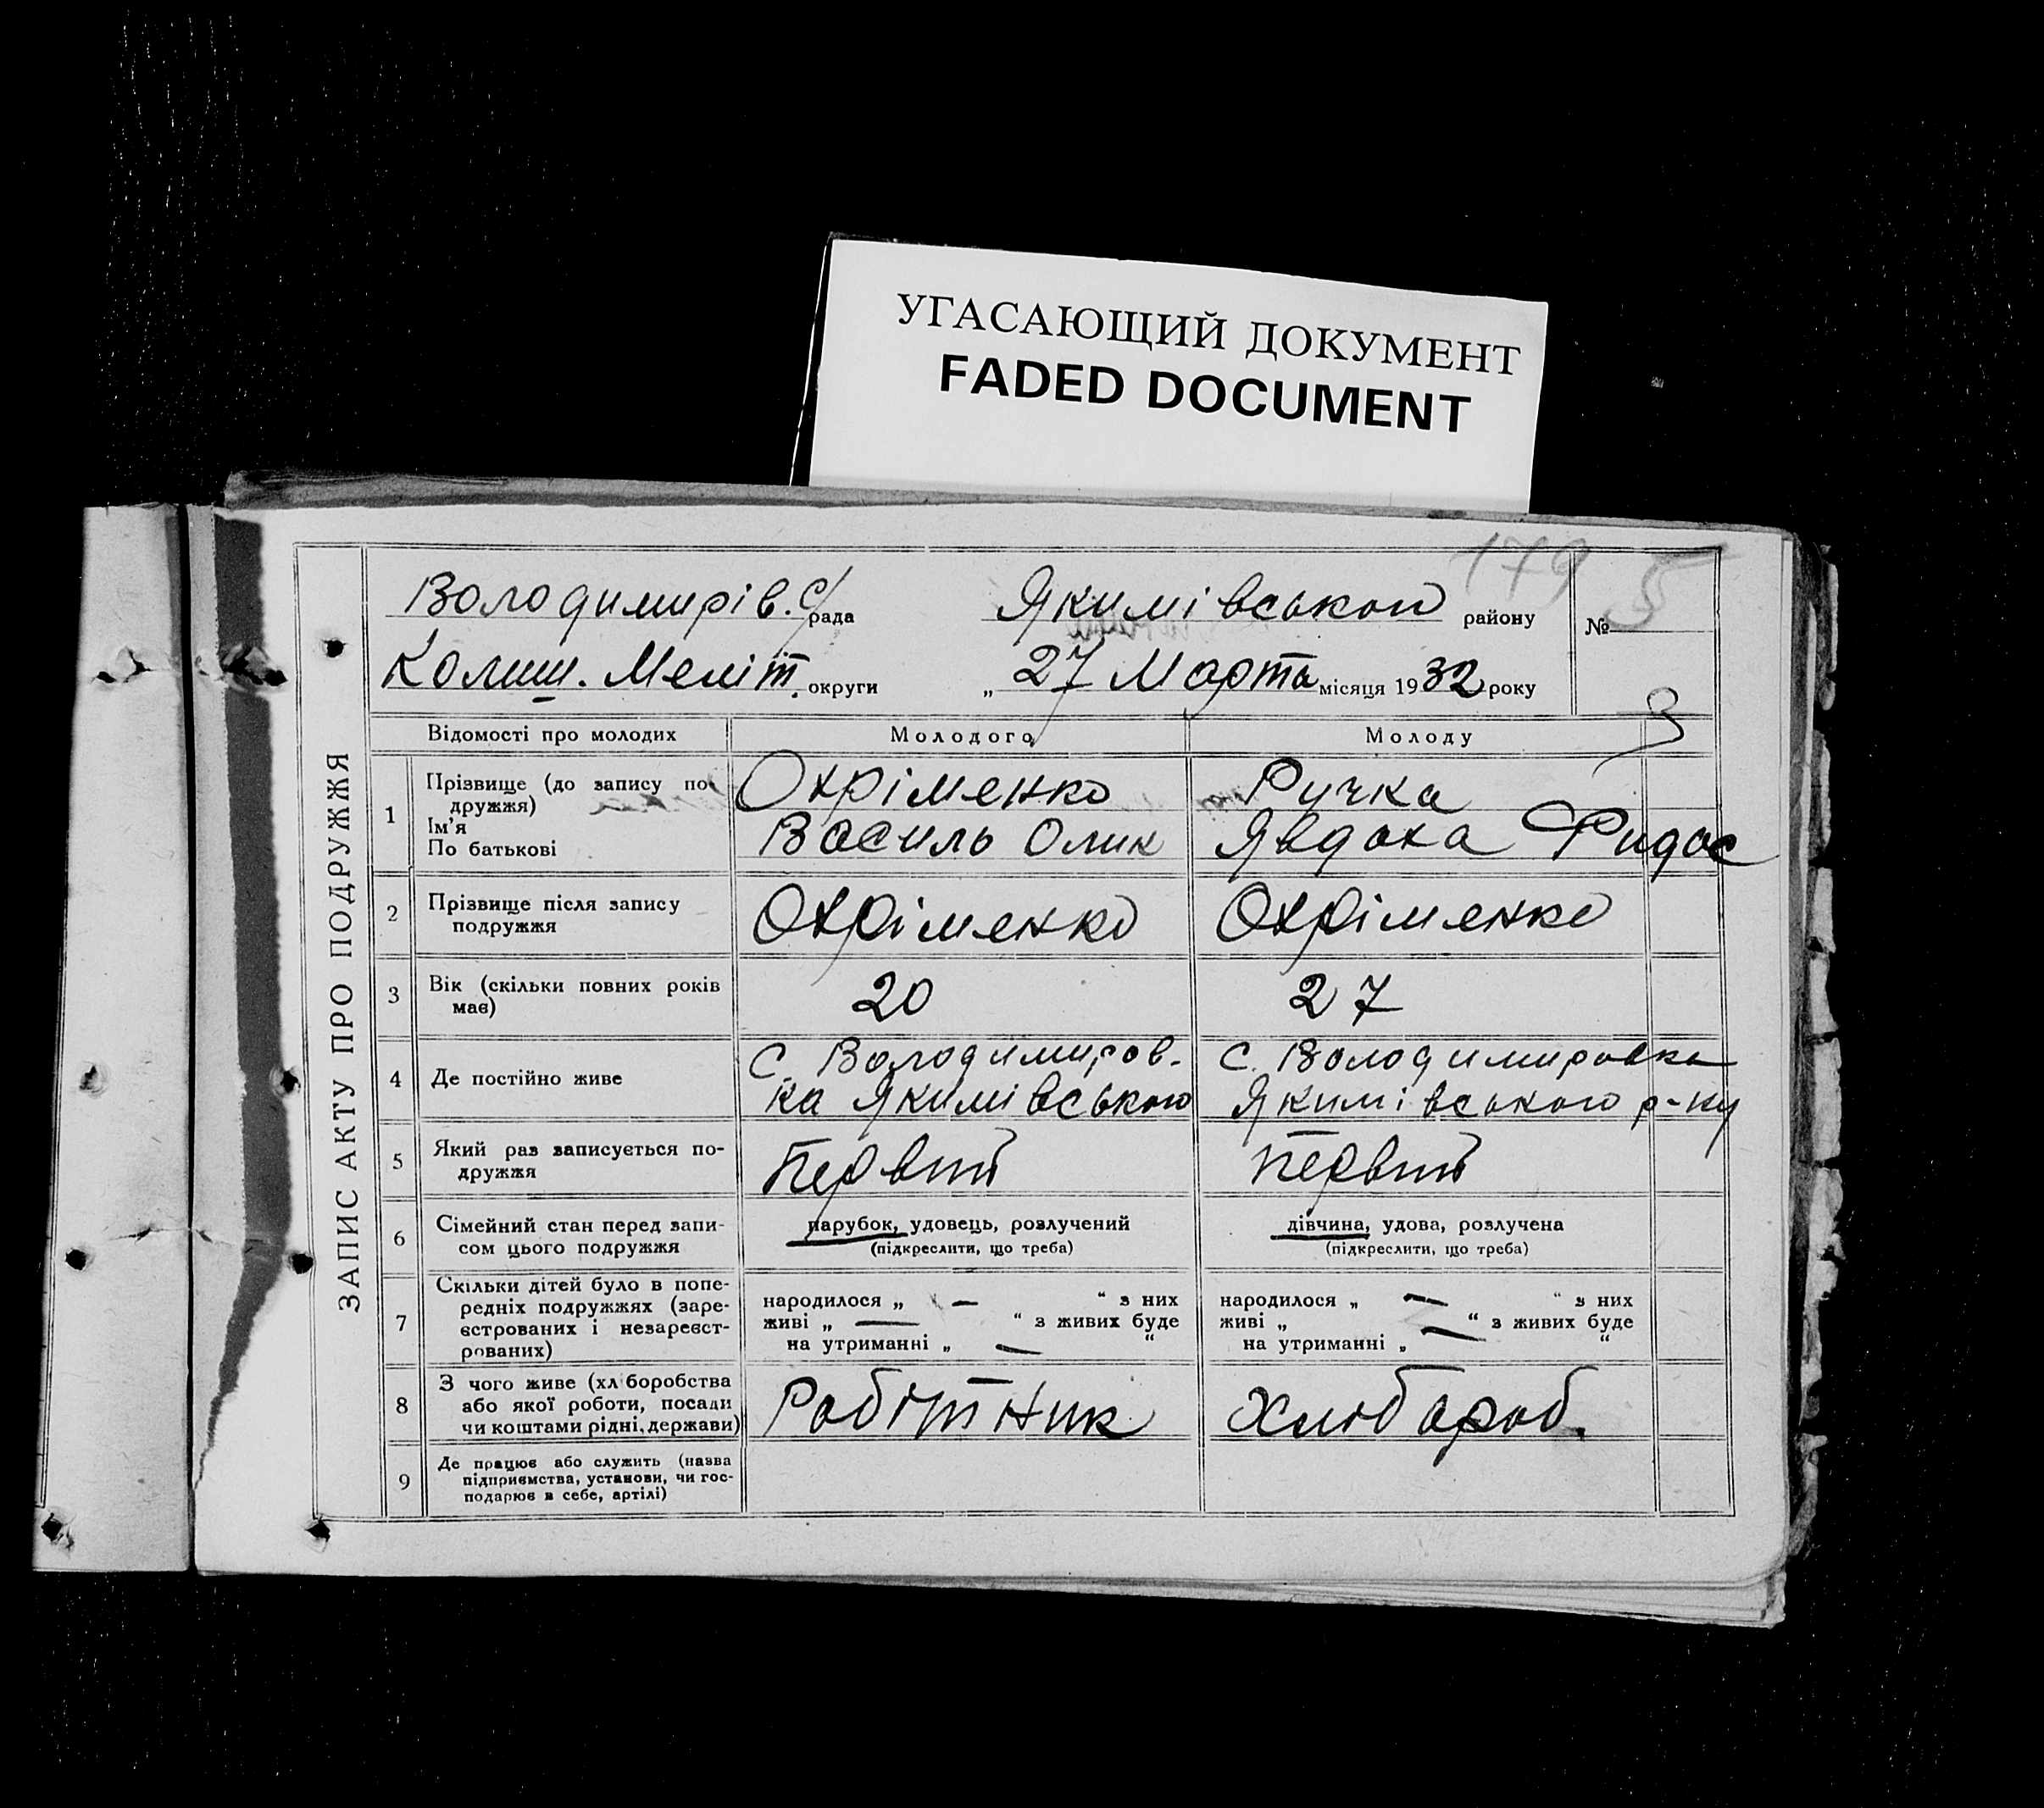 УГАСАЮЩИЙ ДОКУМЕНТ
FADED DOCUMENT
179
ЗАПИС АКТУ ПРО ПОДРУЖЖЯ
Володимирів. с/рада Якимівського району № 5
Колиш. Меліт. округи „ 27 Марта місяця 1932 року
3
Відомості про молодих Молодого Молоду
1 Прізвище (до запису по- Охріменко Ручка
дружжя)
Ім'я Василь Олик Явдоха Фидос
По батькові
2 Прізвище після запису Охріменко Охріменко
подружжя
3 Вік (скільки повних років 20 27
має)
4 Де постійно живе с. Володимиров- с. Володимировка
ка Якимівського Якимівського р-ну
5 Який раз записується по- Первий Первий
дружжя
6 Сімейний стан перед запи- парубок, удовець, розлучений дівчина, удова, розлучена
сом цього подружжя (підкреслити, що треба) (підкреслити, що треба)
7 Скільки дітей було в попе-
редніх подружжях (заре- народилося „ — “ з них народилося „ — “ з них
єстрованих і незареєст- живі „ — “ з живих буде живі „ — “ з живих буде
рованих) на утриманні „ — “ на утриманні „ — “
8 З чого живе (хліборобства Робітник Хлібороб.
або якої роботи, посади
чи коштами рідні, держави)
9 Де працює або служить (назва
підприємства, установи, чи гос-
подарює в себе, артілі)